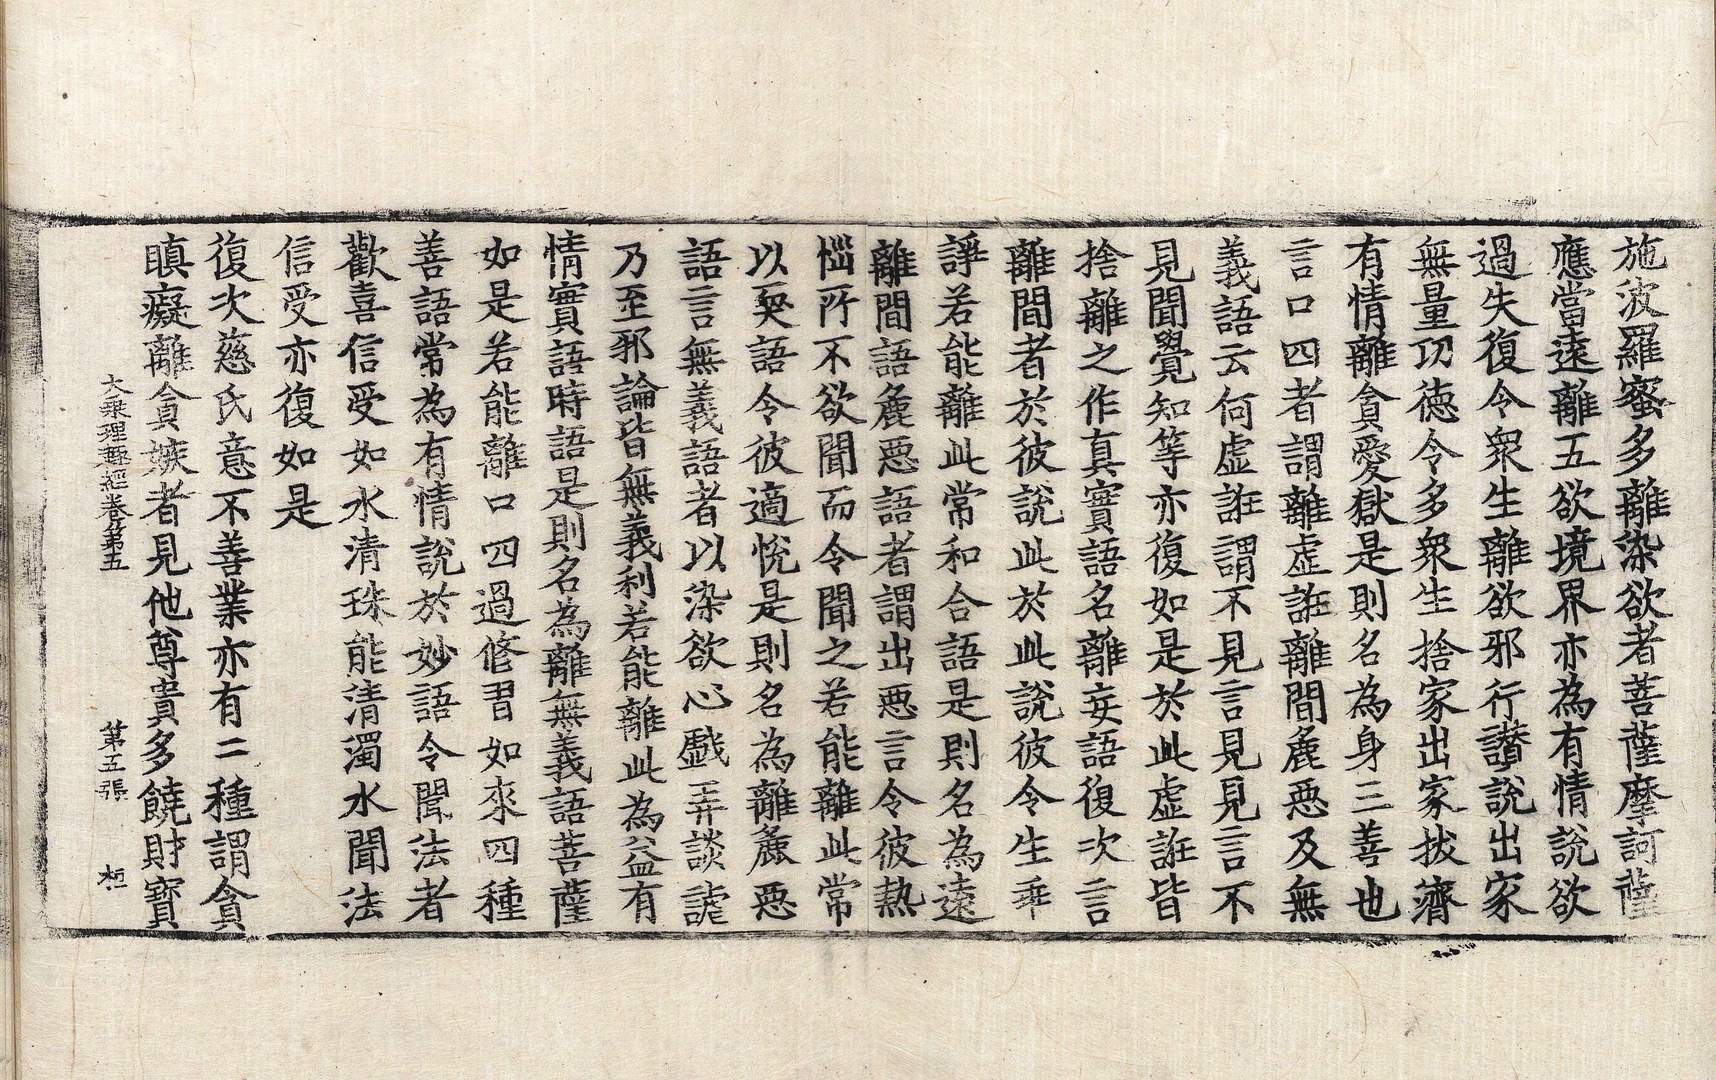 施波羅蜜多離染欲者菩薩摩訶薩
應當遠離五欲境界亦為有情說欲
過失復令衆生離欲邪行讃說出家
無量功德令多衆生捨家出家拔濟
有情離貪愛獄是則名為身三善也
言口四者謂離虛誑離間麁惡及無
義語云何虛誑謂不見言見見言不
見聞覺知等亦復如是於此虛誑皆
捨離之作真實語名離妄語復次言
離間者於彼說此於此說彼令生乖
諍若能離此常和合語是則名為遠
離間語麁惡語者謂出惡言令彼熱
惱所不欲聞而令聞之若能離此常
以耎語令彼適悅是則名為離麁惡
語言無義語者以染欲心戲弄談謔
乃至邪論皆無義利若能離此為益有
情實語時語是則名為離無義語菩薩
如是若能離口四過修習如來四種
善語常為有情說於妙語令聞法者
歡喜信受如水清珠能清濁水聞法
信受亦復如是
復次慈氏意不善業亦有二種謂貪
瞋癡離貪嫉者見他尊貴多饒財寶
大乘理趣經卷第五 第五張 桓